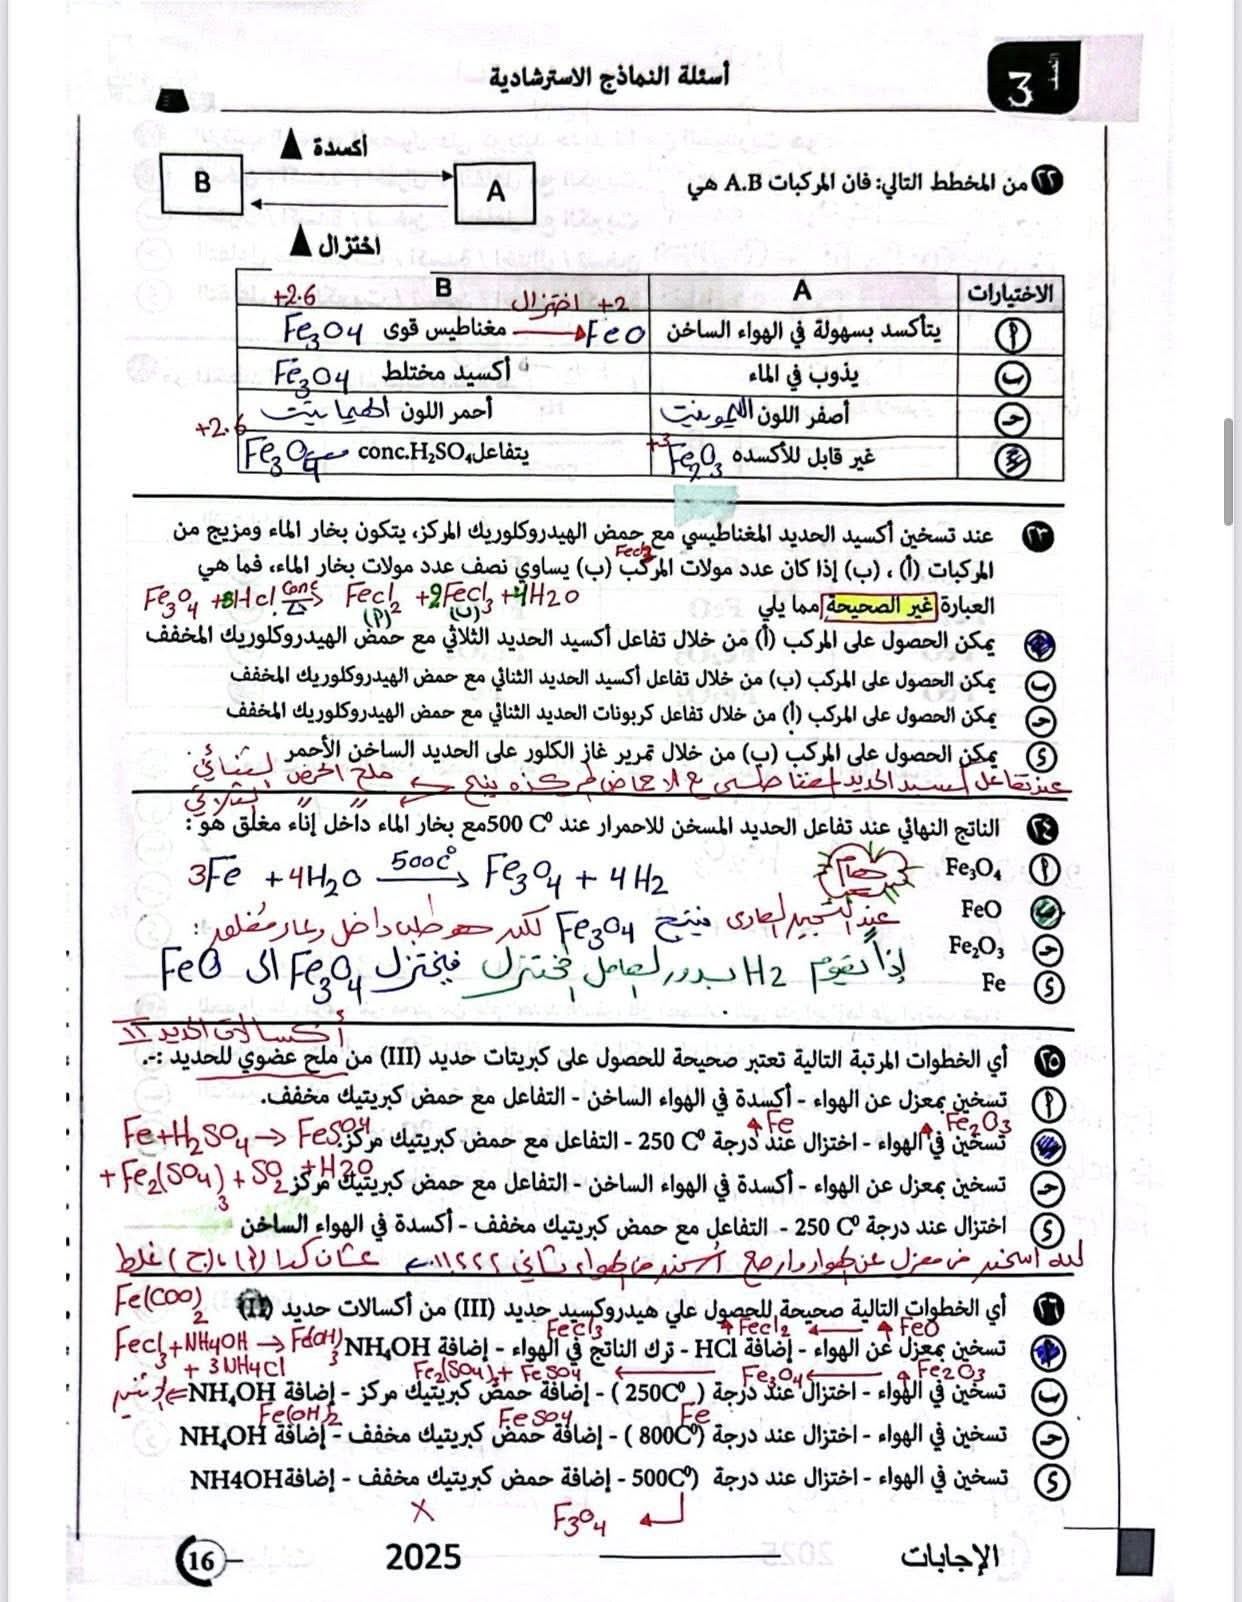 أسئلة النماذج الاسترشادية
الصف 3
٢٢ من المخطط التالي: فان المركبات A.B هي
أكسدة ▲
B
A
اختزال ▲
الاختيارات A B
+2.6 اختزال +2
أ يتأكسد بسهولة في الهواء الساخن FeO مغناطيس قوى Fe3O4
ب يذوب في الماء أكسيد مختلط Fe3O4
جـ أصفر اللون الليمونيت أحمر اللون الهيماتيت
+2.6 +3
د غير قابل للأكسده Fe2O3 يتفاعل conc.H₂SO₄ Fe3O4
٢٣ عند تسخين أكسيد الحديد المغناطيسي مع حمض الهيدروكلوريك المركز، يتكون بخار الماء ومزيج من
FeCl3
المركبات (أ) ، (ب) إذا كان عدد مولات المركب (ب) يساوي نصف عدد مولات بخار الماء، فما هي
العبارة غير الصحيحة مما يلي
Fe3O4 + 8HCl Conc Δ→ FeCl2 + 2FeCl3 + 4H2O
(أ) (ب)
أ يمكن الحصول على المركب (أ) من خلال تفاعل أكسيد الحديد الثلاثي مع حمض الهيدروكلوريك المخفف
ب يمكن الحصول على المركب (ب) من خلال تفاعل أكسيد الحديد الثنائي مع حمض الهيدروكلوريك المخفف
جـ يمكن الحصول على المركب (أ) من خلال تفاعل كربونات الحديد الثنائي مع حمض الهيدروكلوريك المخفف
د يمكن الحصول على المركب (ب) من خلال تمرير غاز الكلور على الحديد الساخن الأحمر
عند تفاعل أكسيد الحديد المغناطيسي مع الاحماض المركزه ينتج ← ملح الحمض الثنائي
← " " الثلاثي
٢٤ الناتج النهائي عند تفاعل الحديد المسخن للاحمرار عند 500 C⁰ مع بخار الماء داخل إناء مغلق هو :
أ Fe₃O₄
هام
3Fe + 4H2O 500C° → Fe3O4 + 4H2
ب FeO
عند التحضير العادى فينتج Fe3O4 لكن هو طلب داخل وعاء مغلق :
جـ Fe₂O₃
إذاً يقوم H2 بدور العامل المختزل فيختزل Fe3O4 الى FeO
د Fe
أكسالات الحديد II
٢٥ أي الخطوات المرتبة التالية تعتبر صحيحة للحصول على كبريتات حديد (III) من ملح عضوي للحديد :-.
أ تسخين بمعزل عن الهواء - أكسدة في الهواء الساخن - التفاعل مع حمض كبريتيك مخفف.
Fe2O3 Fe
ب تسخين في الهواء - اختزال عند درجة 250 C⁰ - التفاعل مع حمض كبريتيك مركز.
Fe + H2SO4 → FeSO4
+ Fe2(SO4)3 + SO2 + H2O
جـ تسخين بمعزل عن الهواء - أكسدة في الهواء الساخن - التفاعل مع حمض كبريتيك مركز
د اختزال عند درجة 250 C⁰ - التفاعل مع حمض كبريتيك مخفف - أكسدة في الهواء الساخن
ليه اسخن من معزل عن الهواء وارجع أكسد من الهواء تاني عشان كدا (أ) ، (ج) غلط
Fe(COO)2
٢٦ أي الخطوات التالية صحيحة للحصول علي هيدروكسيد حديد (III) من أكسالات حديد (II)
FeCl3 FeCl2 FeO
أ تسخين بمعزل عن الهواء - إضافة HCl - ترك الناتج في الهواء - إضافة NH₄OH
FeCl3 + NH4OH → Fe(OH)3
+ 3NH4Cl
Fe2(SO4)3 + FeSO4 Fe3O4 Fe2O3
ب تسخين في الهواء - اختزال عند درجة (250C⁰ ) - إضافة حمض كبريتيك مركز - إضافة NH₄OH
Fe(OH)2 FeSO4 Fe
جـ تسخين في الهواء - اختزال عند درجة (800C⁰ ) - إضافة حمض كبريتيك مخفف - إضافة NH₄OH
د تسخين في الهواء - اختزال عند درجة (500C⁰ - إضافة حمض كبريتيك مخفف - إضافة NH4OH
X F3O4
الإجابات 2025 16